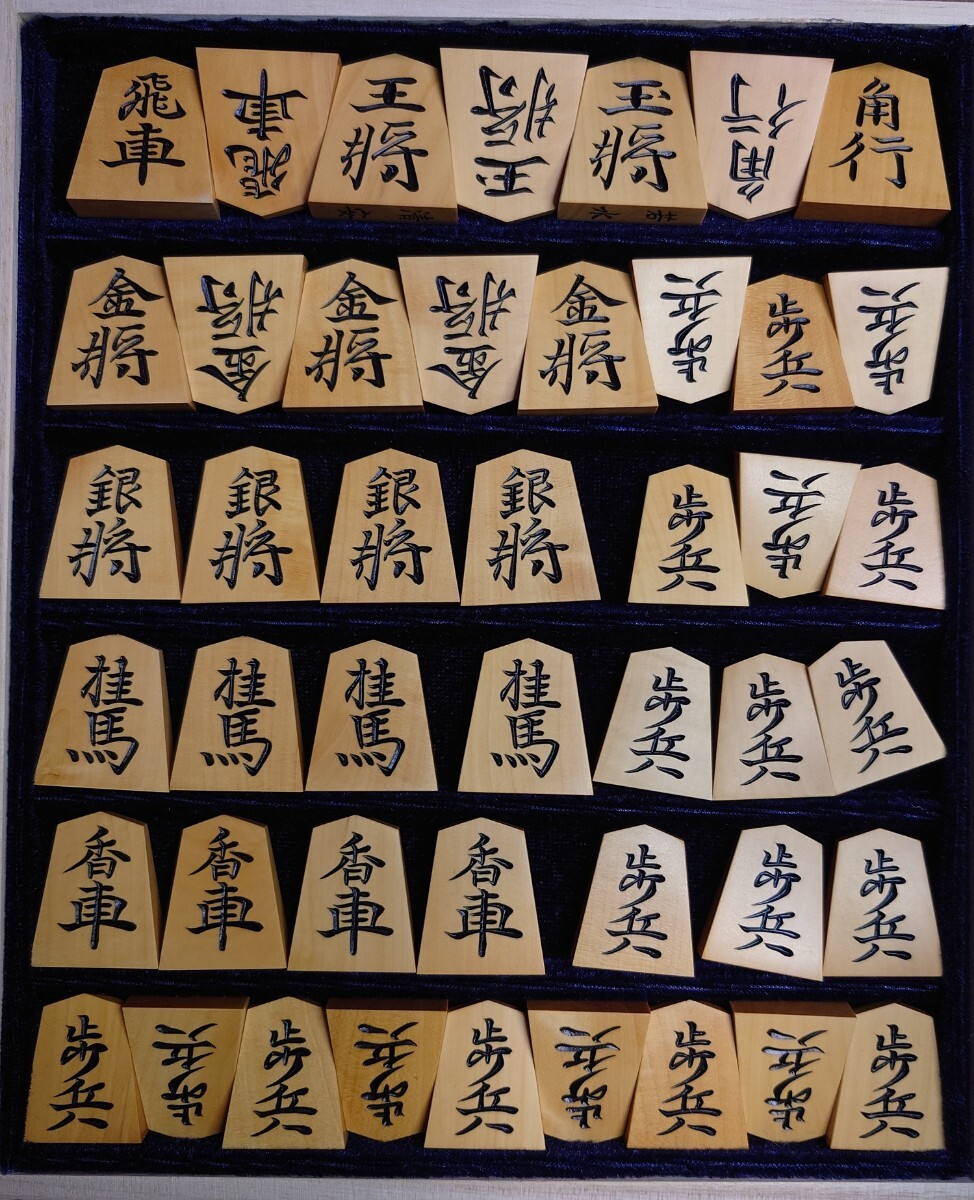 飛車
飛車
王將
玉將
玉將
角行
角行
金將
金將
金將
金將
金將
歩兵
歩兵
歩兵
銀將
銀將
銀將
銀將
歩兵
歩兵
歩兵
桂馬
桂馬
桂馬
桂馬
歩兵
歩兵
歩兵
香車
香車
香車
香車
歩兵
歩兵
歩兵
歩兵
歩兵
歩兵
歩兵
歩兵
歩兵
歩兵
歩兵
歩兵